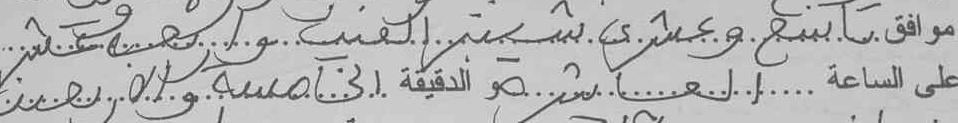 موافق تاسع وعشرى شتنبر الفين واربعة عشر
على الساعة العاشرة و الدقيقة الخامسة والاربعين